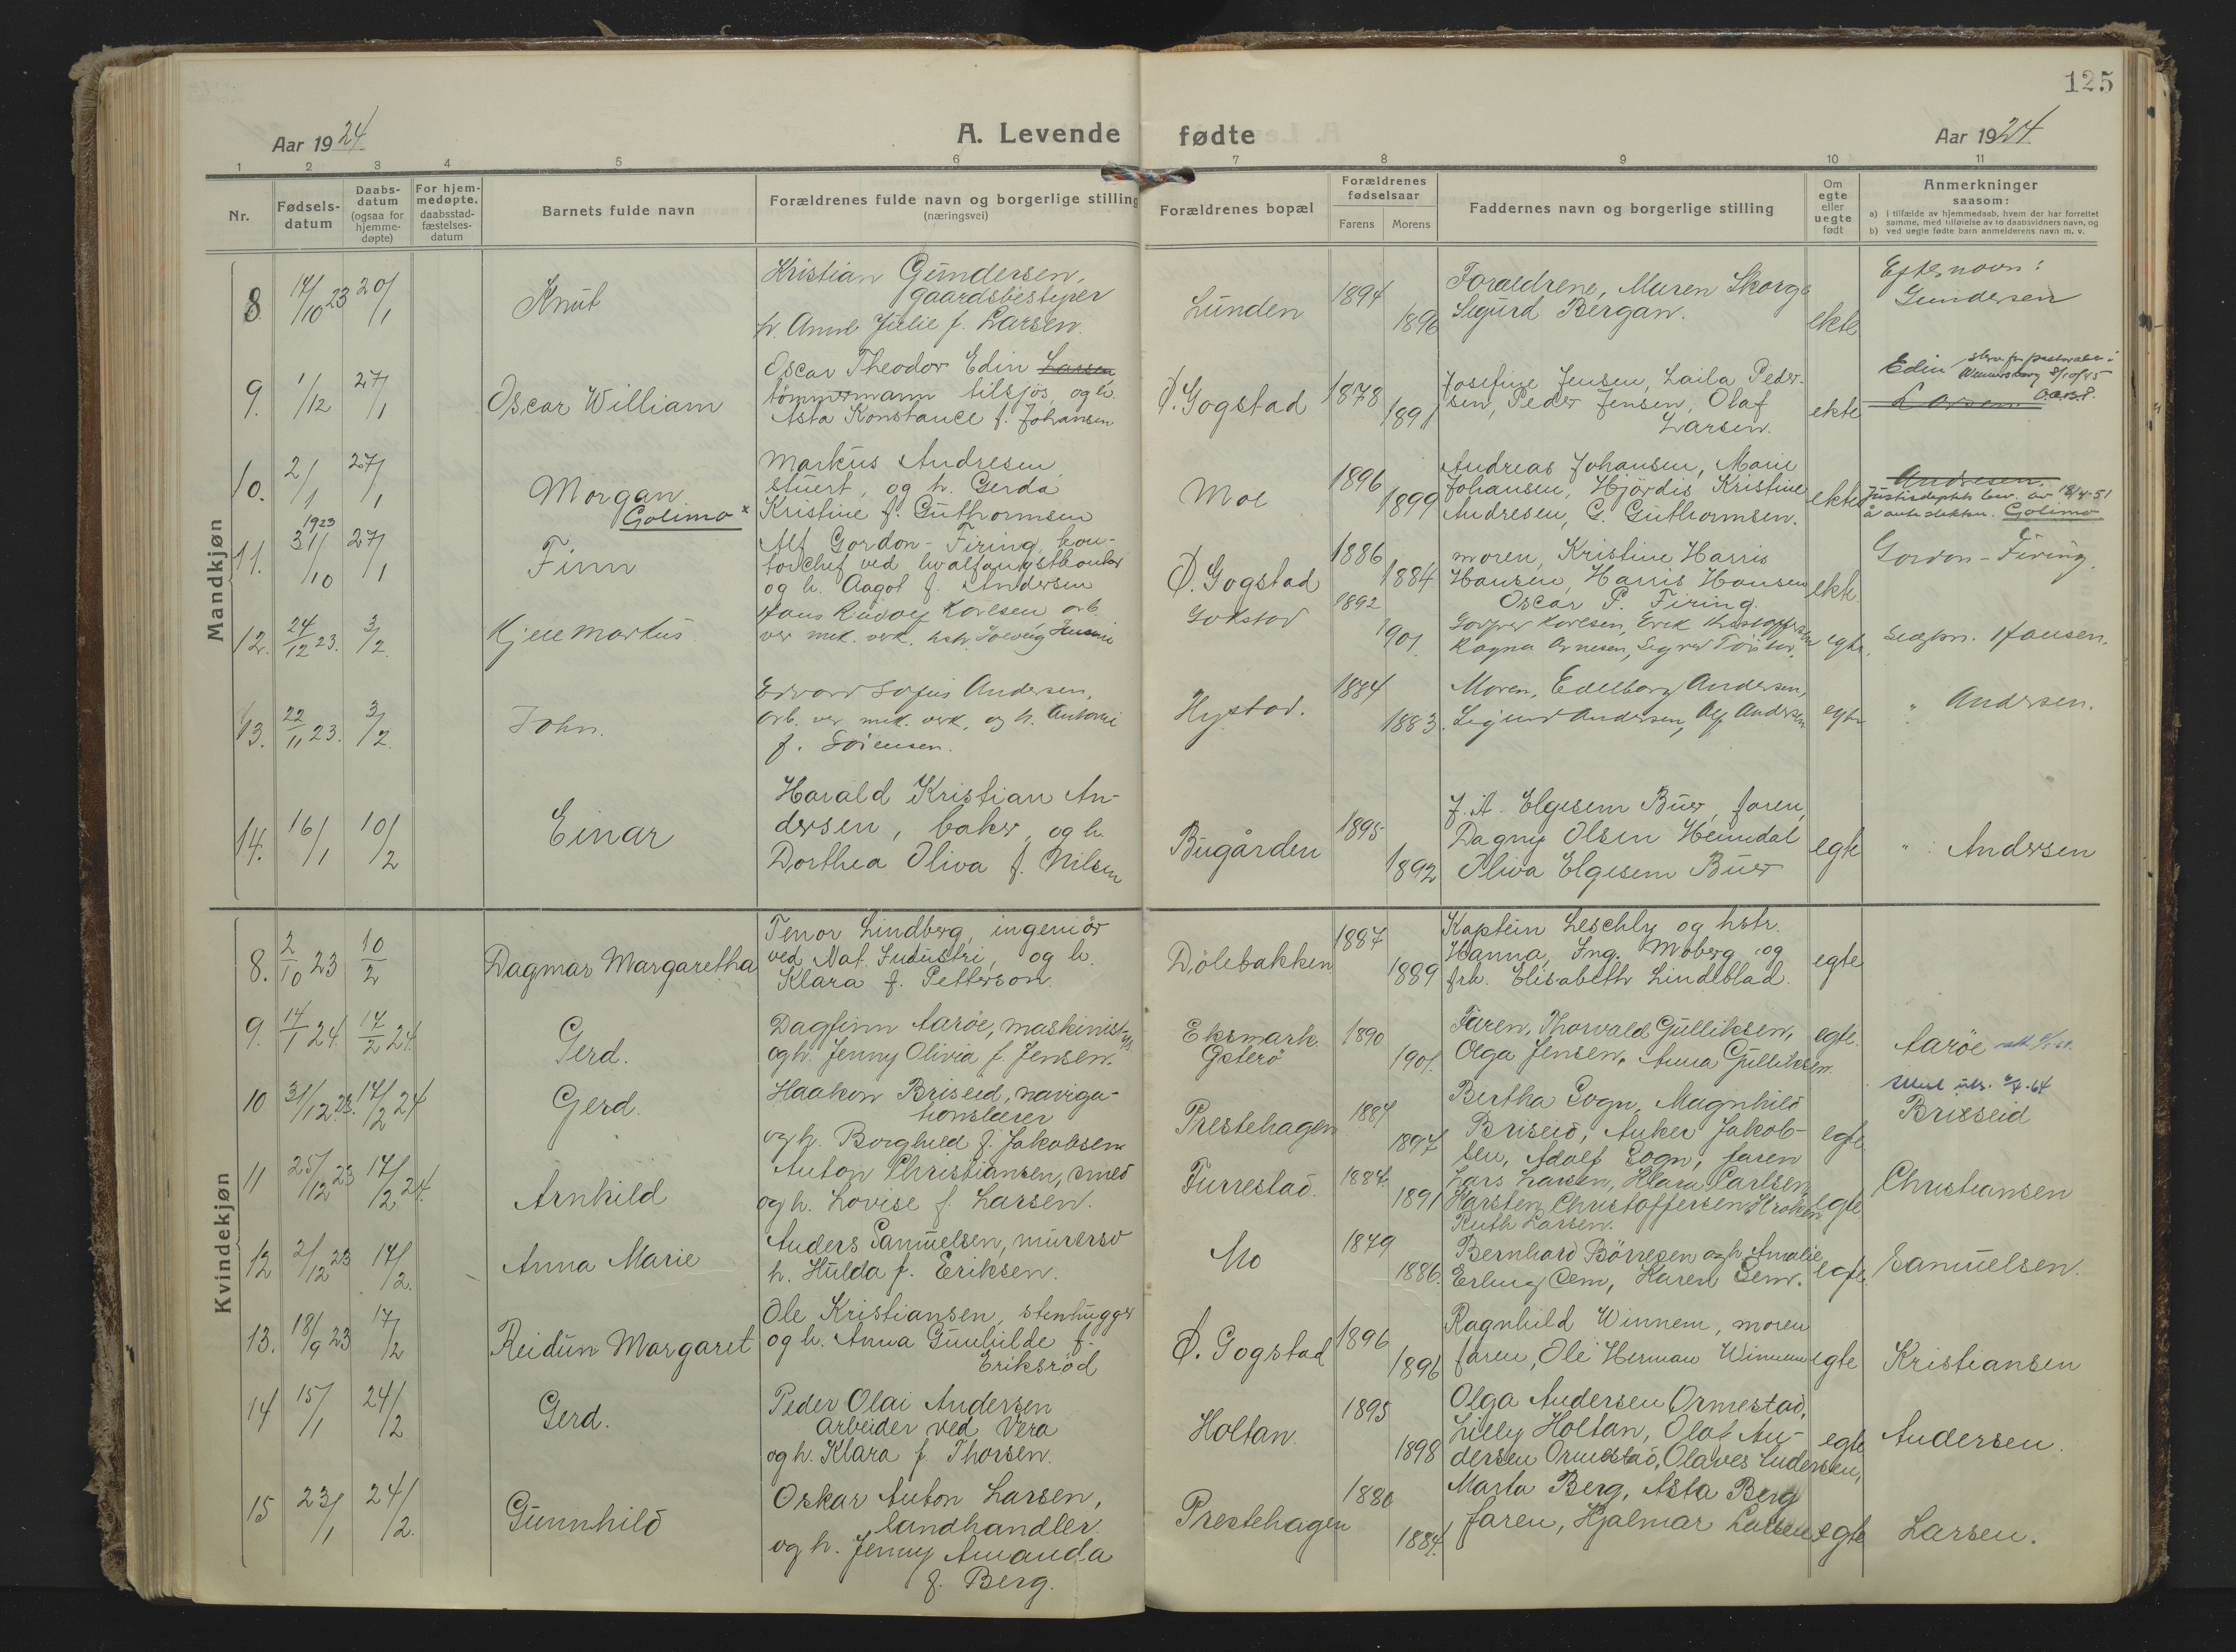 125
Aar 1924
A. Levende fødte
Aar 1924
1 2 3 4 5 6 7 8 9 10 11
Nr.
Fødsels-
datum
Daabs-
datum
(ogsaa for
hjemme-
døpte)
For hjem-
medøpte,
daabsstad-
fæstelses-
datum
Barnets fulde navn
Forældrenes fulde navn og borgerlige stilling
(næringsvei)
Forældrenes bopæl
Forældrenes
fødselsaar
Farens Morens
Faddernes navn og borgerlige stilling
Om
egte
eller
uegte
født
Anmerkninger
saasom:
a) i tilfælde av hjemmedaab, hvem der har forrettet
samme, med tilføielse av to daabsvidners navn, og
b) ved uegte fødte barn anmelderens navn m. v.
Mandkjøn
8. 17/10 23 20/1
Knut
Kristian Gundersen,
gaardsbestyrer
h. Anne Julie f. Larsen.
Lunden
1894
1896
Forældrene, Maren Skorge
Sigurd Bergan.
ekte
Efternavn:
Gundersen
9. 1/12 27/1
Oscar William
Oscar Theodor Edin Larsen
tömmermann tilsjös, og h.
Asta Konstance f. Johansen
Ø. Gogstad
1878
1891
Josefine Jensen, Laila Peder-
sen, Peder Jensen, Olaf
Larsen.
ekte
Edin
Larsen
10. 2/1 27/1
Morgan
Golimo x
Markus Andresen
stuert, og h. Gerda
Kristine f. Guthormsen
Moe
1896
1899
Andreas Johansen, Marie
Johansen, Hjördis Kristine
Andresen, G. Guthormsen.
ekte
Andresen.
Golimo
11. 1923 31/10 27/1
Finn
Alf Gordon-Firing, kon-
torchef ved hvalfangstkontor
og h. Aagot f. Andersen
Ø. Gogstad
1886
1884
moren, Kristine Harris
Hansen, Harris Hansen
Oscar P. Firing.
ekte.
Gordon-Firing.
12. 24/12 23. 3/2.
Kjell Markus
arb.
ved mek. verk. hstr. Solveig
Gokstad
1892
1901.
egte.
Hansen.
13. 22/11 23. 3/2.
John.
Edvard Sofus Andersen,
arb. ved mek. verk, og h. Antonie
f. Sörensen.
Hystad.
1884
1883.
Moren, Edelborg Andersen,
Sigurd Andersen, Alf Andersen
egte
" Andersen.
14. 16/1 10/2
Einar
Harald Kristian An-
dersen, baker, og h.
Dorthea Oliva f. Nilsen
Bugården
1895
1892
J. A. Elgesem Buer, faren,
Dagny Olsen Heimdal
Oliva Elgesem Buer
egte
" Andersen
Kvindekjøn
8. 2/10 23 10/2
Dagmar Margaretha
Tenor Lindberg, ingeniör
ved Nat. Industri, og h.
Klara f. Petterson.
Dölebakken
1887
1889
Kaptein Leschly og hstr.
Hanna, Ing. Moberg og
frk. Elisabeth Lindblad.
egte
9. 14/1 24. 17/2 24.
Gerd.
Dagfinn Aaröe, maskinist
og h. Jenny Olivia f. Jensen.
Eksmark.
Gsterö
1890
1901.
Faren, Thorvald Gulliksen,
Olga Jensen, Anna Gulliksen.
egte.
Aaröe
10 31/12 23. 17/2 24
Gerd.
Haakon Briseid, naviga-
tionslærer
og h. Borghild f. Jakobsen.
Prestehagen
1884
1897
Bertha Sogn, Magnhild
Briseid, Anker Jakob-
sen, Adolf Sogn, faren
egte.
Briseid
11 25/12 23 17/2 24.
Arnhild
Anton Christiansen, smed
og h. Lovise f. Larsen.
Furrestad.
1884.
1891
Lars Larsen, Klara Carlsen,
Karsten Christoffersen Kroken
Ruth Larsen.
egte
Christiansen
12 2/12 23 17/2.
Anna Marie
Anders Samuelsen, murersv
h. Hulda f. Eriksen.
Mo
1879
1886.
Bernhard Börresen og h. Amalie
Erling Gem, Karen Gem.
egte.
Samuelsen.
13. 18/9 23 17/2
Reidun Margaret
Ole Kristiansen, stenhugger
og h. Anna Gunhilde f.
Eriksröd
Ø. Gogstad
1896
1896
Ragnhild Winnem, moren
faren, Ole Herman Winnem
egte
Kristiansen
14 15/1 24/2
Gerd.
Peder Olai Andersen
arbeider ved Vera
og h. Klara f. Thorsen.
Holtan.
1895
1898
Olga Andersen Ormestad,
Lilly Holtan, Olaf An-
dersen Ormestad, Olaves Andersen,
egte
Andersen.
15 23/1 24/2.
Gunnhild
Oskar Anton Larsen,
landhandler.
og h. Jenny Amanda
f. Berg.
Prestehagen
1880
1884.
Marta Berg, Asta Berg
faren, Hjalmar Larsen
egte
Larsen.